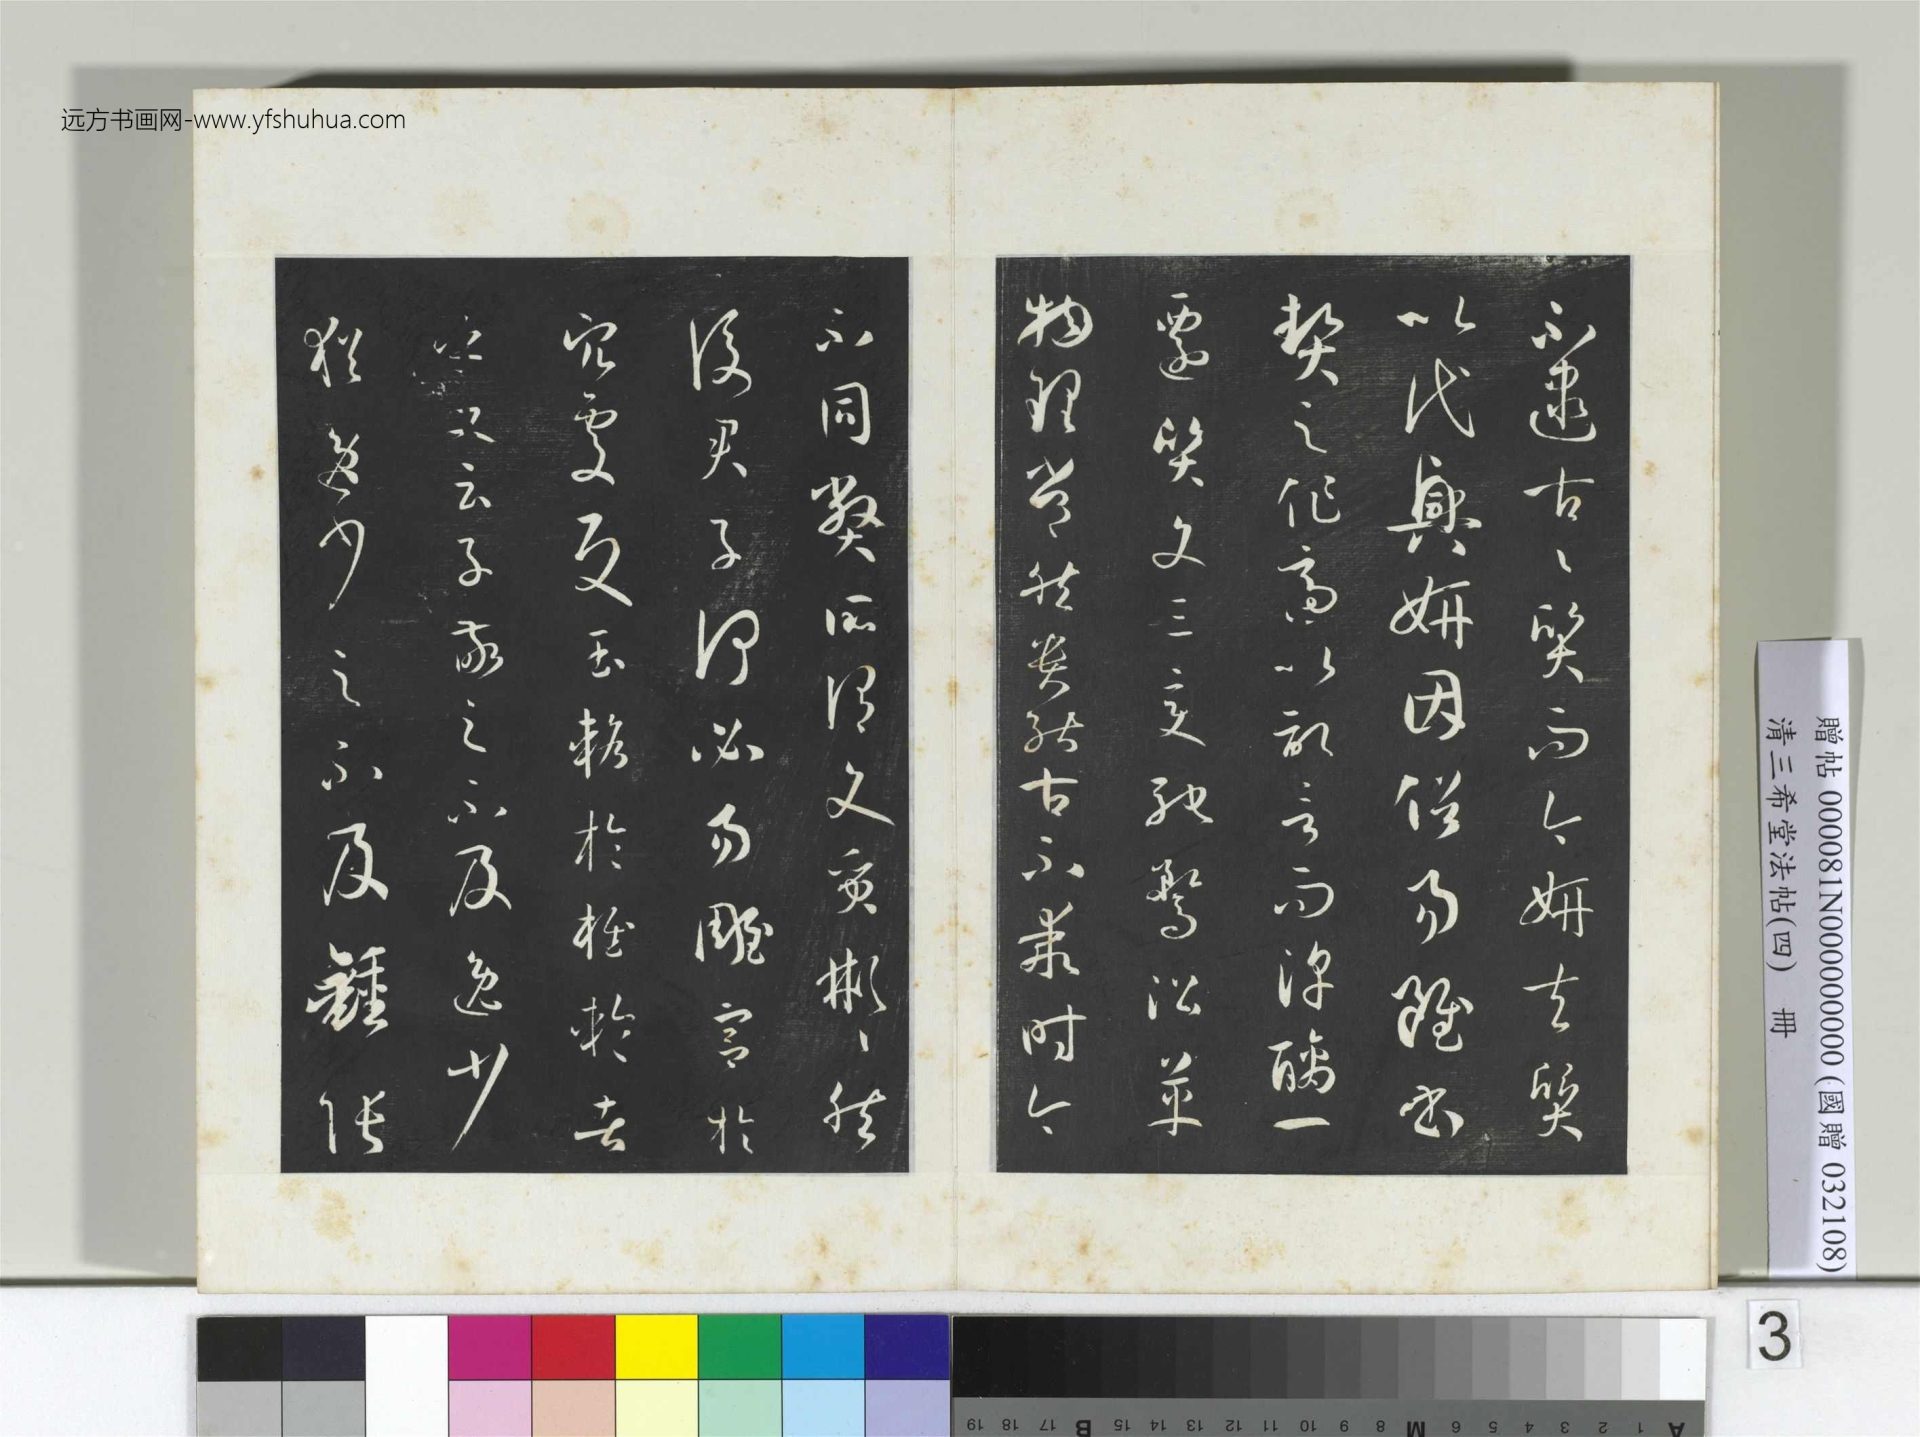 远方书画网-www.yfshuhua.com
不逮古〻質而今妍夫質
以代興妍因俗易雖書
契之作適以記言而淳醨一
遷質文三變馳騖沿革
物理常然貴能古不乖時今
不同弊所謂文質彬〻然
後君子何必易雕宮於
穴處反玉輅於椎輪者
乎又云子敬之不及逸少
猶逸少之不及鍾張
贈帖 000081N000000000 (國贈 032108)
清三希堂法帖(四) 冊
3
19 18 17 B 15 14 13 12 11 10 9 8 M 6 5 4 3 2 1 A